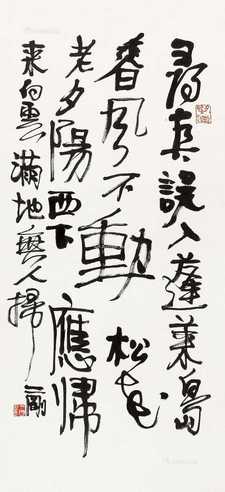 尋真誤入蓬萊島
香風不動松花
老夕陽西下應歸
來白雲滿地無人掃